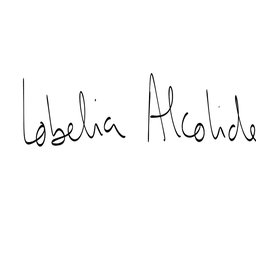 Lobelia Alcolide